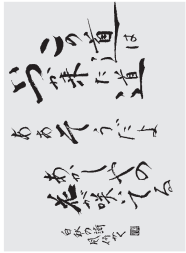 この道は
いつか来た道
ああそうだよ
あかしやの
花が咲いてる
白秋の詩